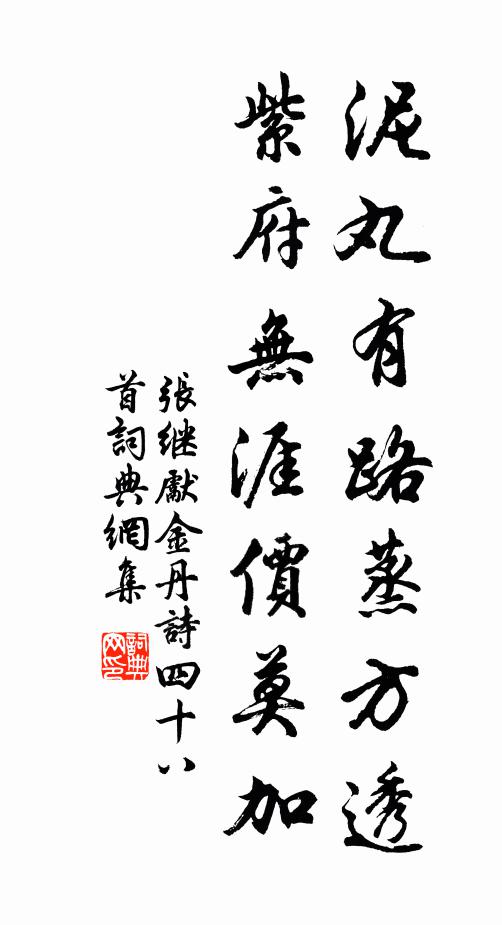 泥丸有路蒸方透
紫府無涯價莫加
張继獻金丹詩四十八
首詞典網集
詞典网印